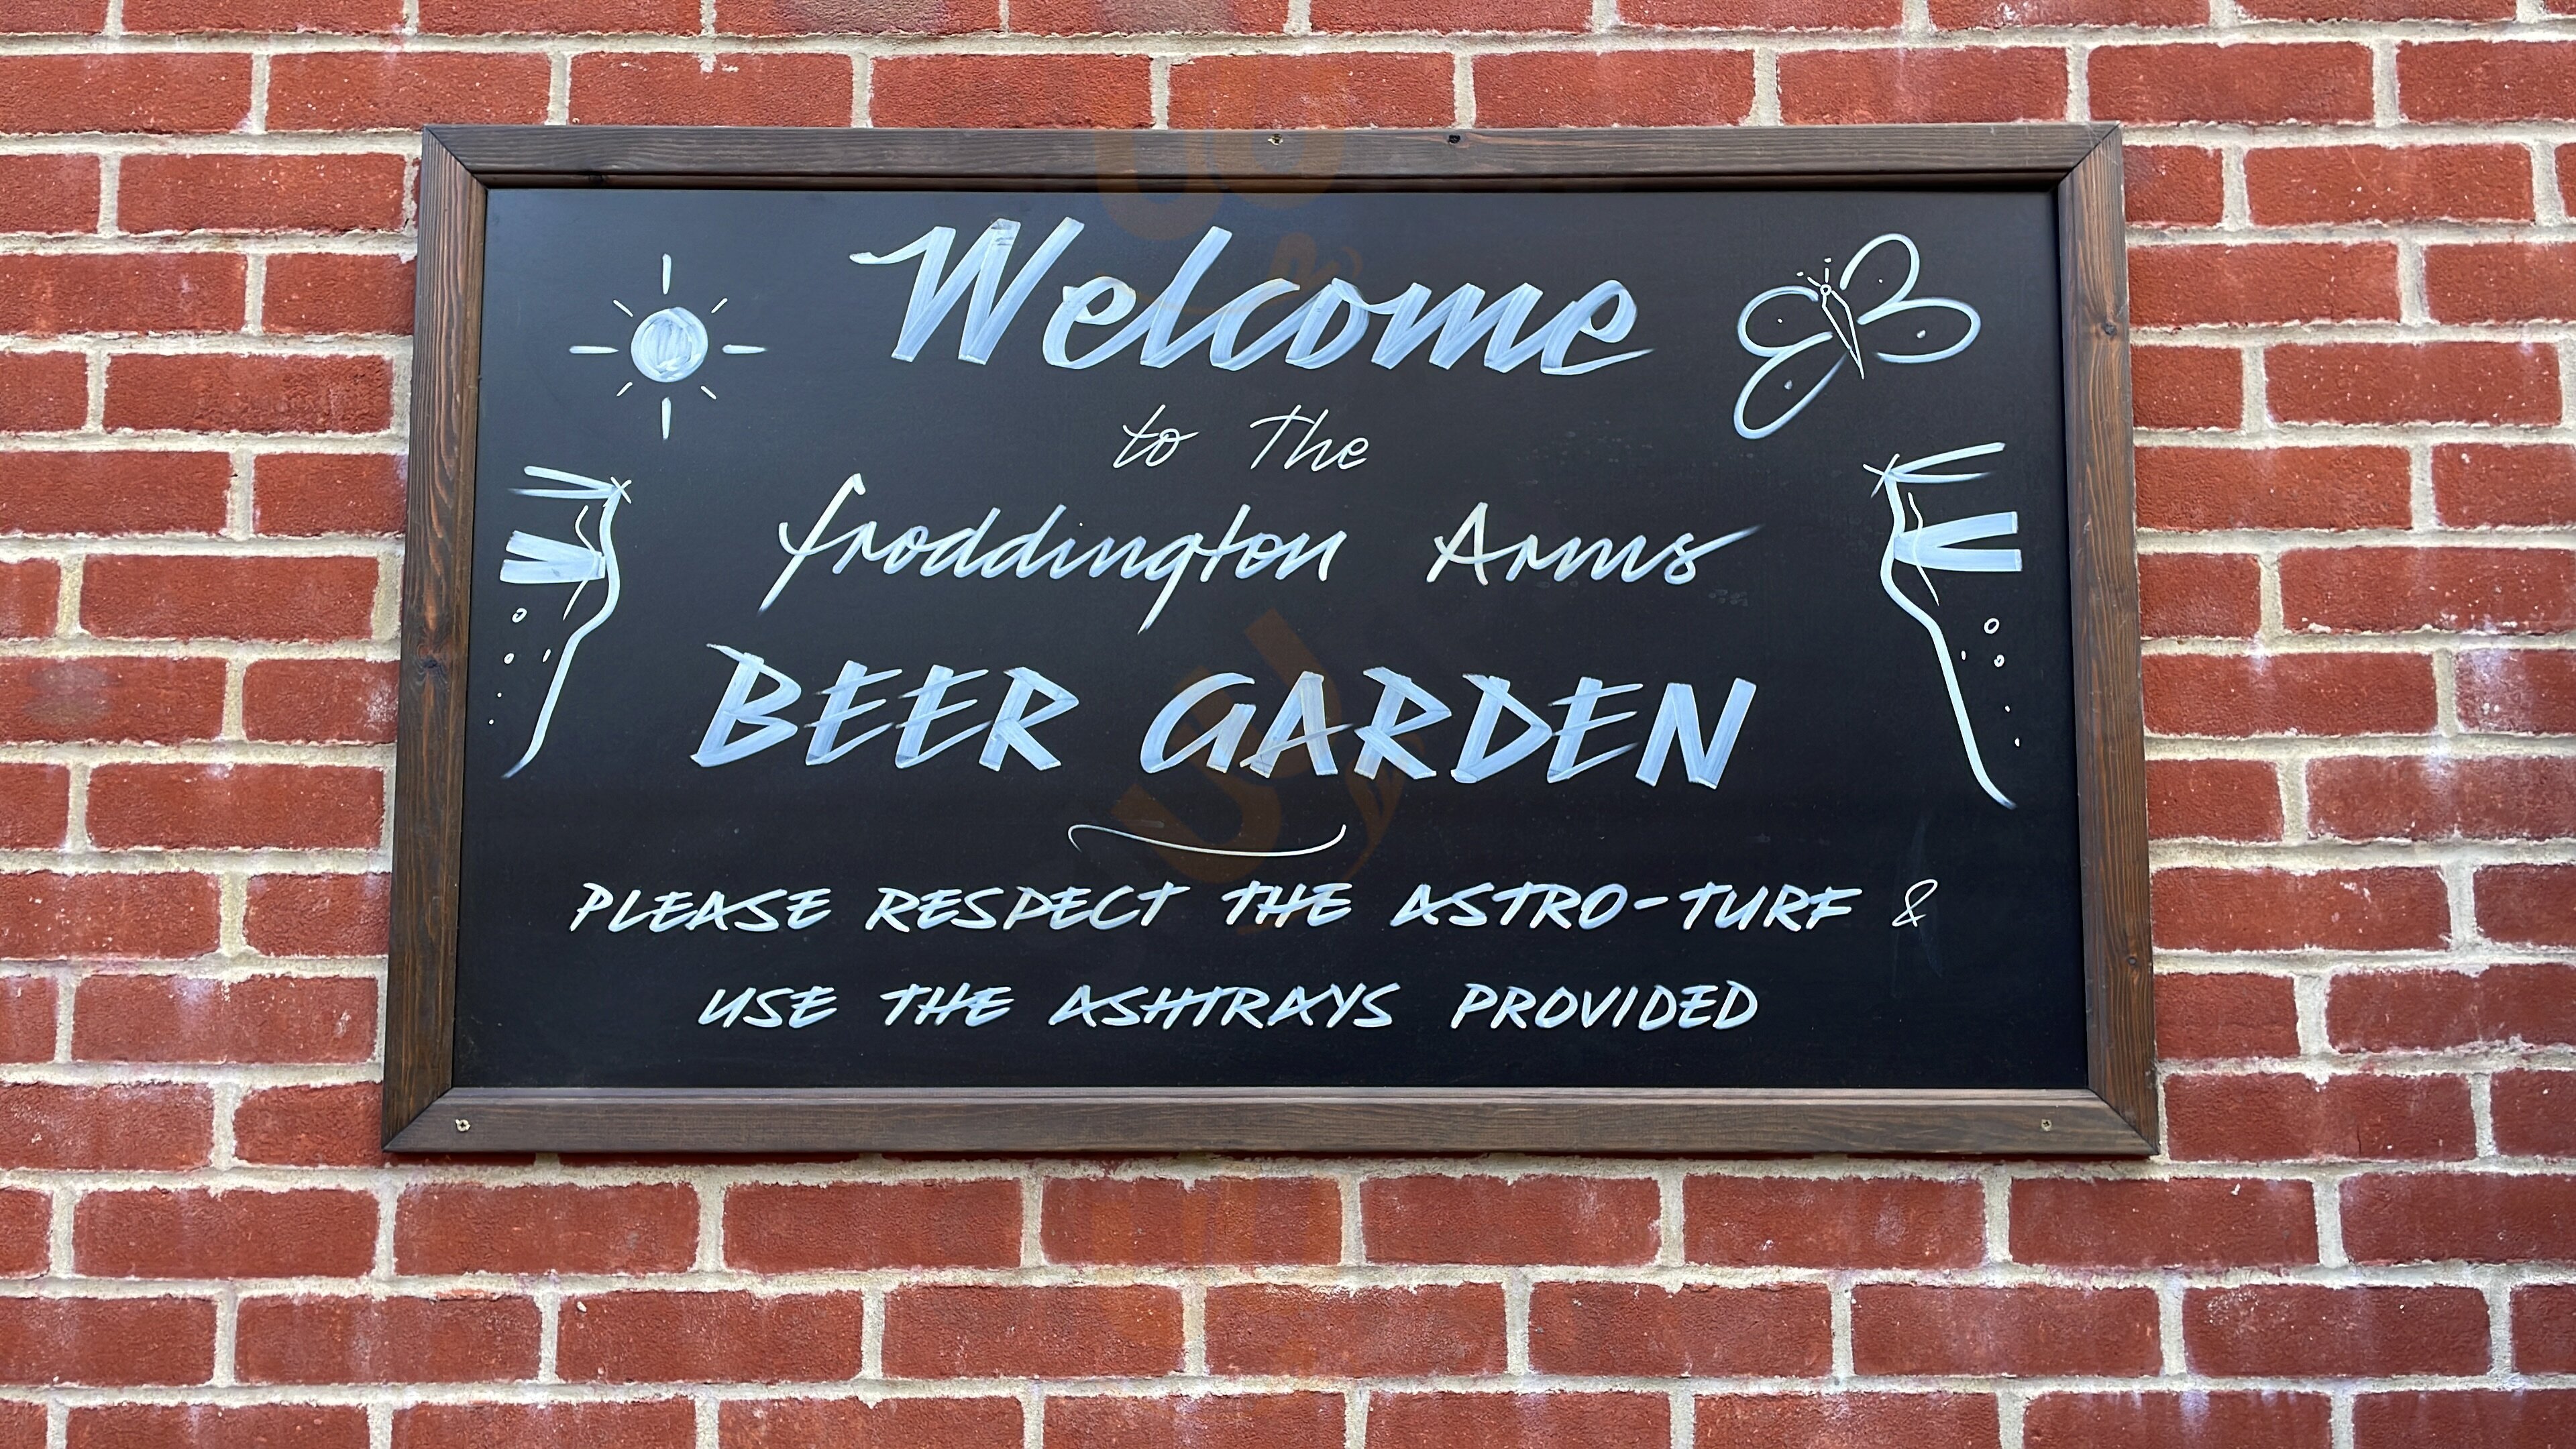 Welcome
to The
froddington Arms
BEER GARDEN
PLEASE RESPECT THE ASTRO-TURF &
USE THE ASHTRAYS PROVIDED